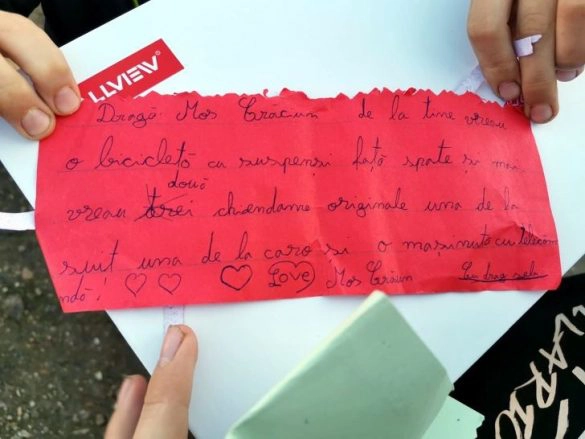 LLVIEW®
Dragă Mos Cracium de la tine vreau
o bicicletă cu suspensi față spate și mai
două
vreau trei chiendame originale una de la
suit una de la caro si o mașinuță cu telecom
ndă! Love Mos Crăium Cu drag